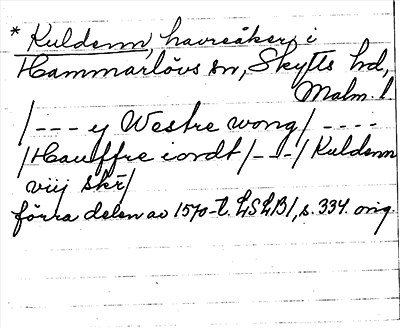 * Kuldenn, havreåker i
Hammarlövs sn, Skytts hd,
Malm. l
/--- y Westre wong/ ----
/Hauffre iordt/---/Kuldenn
viij skr/
förra delen av 1570-t. LSLB1, s. 334. orig.